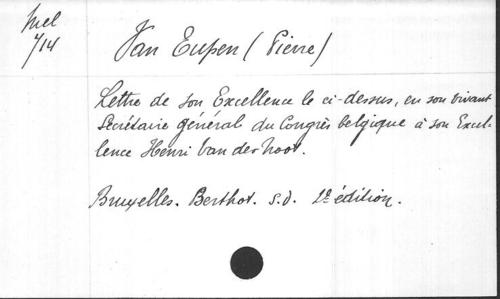 Mel
7/14
Van Eupen (Pierre)
Lettre de son Excellence le ci-dessus, en son vivant
Secrétaire général du Congrès belgique à son Excel-
lence Henri Van der Noot.
Bruxelles. Berthot. s.d. 2e édition.